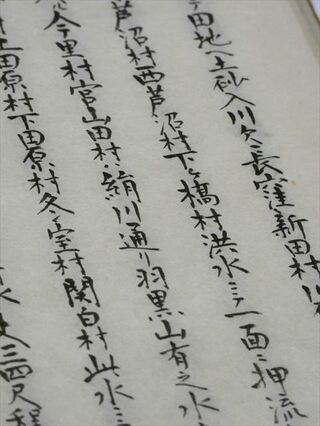 田地へ土砂入川欠長窪新田村
芦沼村西芦沼村下ヶ橋村洪水ニ而一面ニ押流
今里村宮山田村絹川通り羽黒山有之水
上田原村下田原村冬室村関白村此水ニ
三四尺程